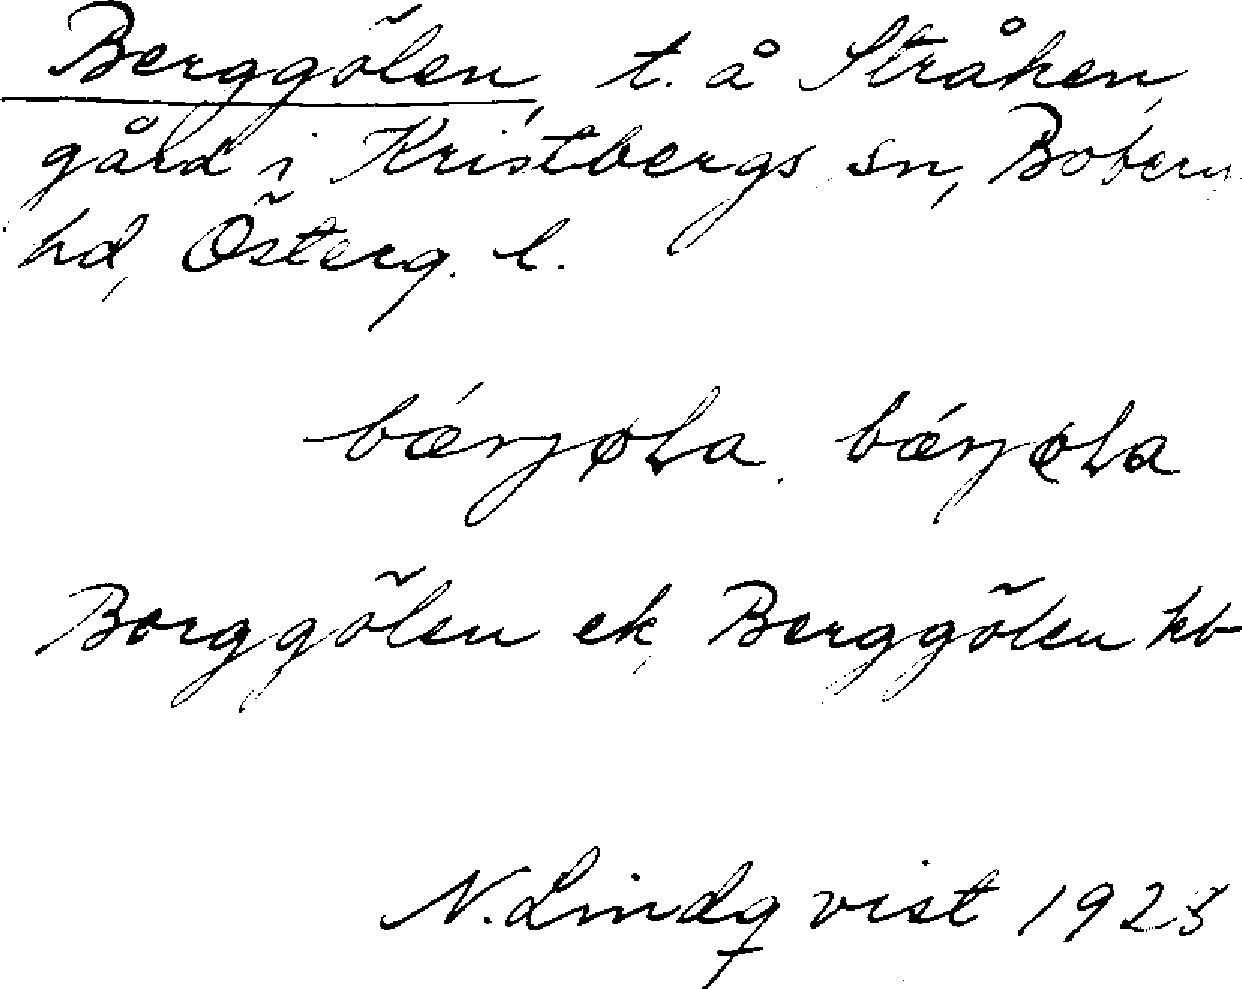 Berggölen, t. å Stråken,
gård i Kristbergs sn, Bobergs
hd, Österg. l.
bǽrjøLa. bǽrjøLa
Borggölen ek, Berggölen kb
N. Lindqvist 1923